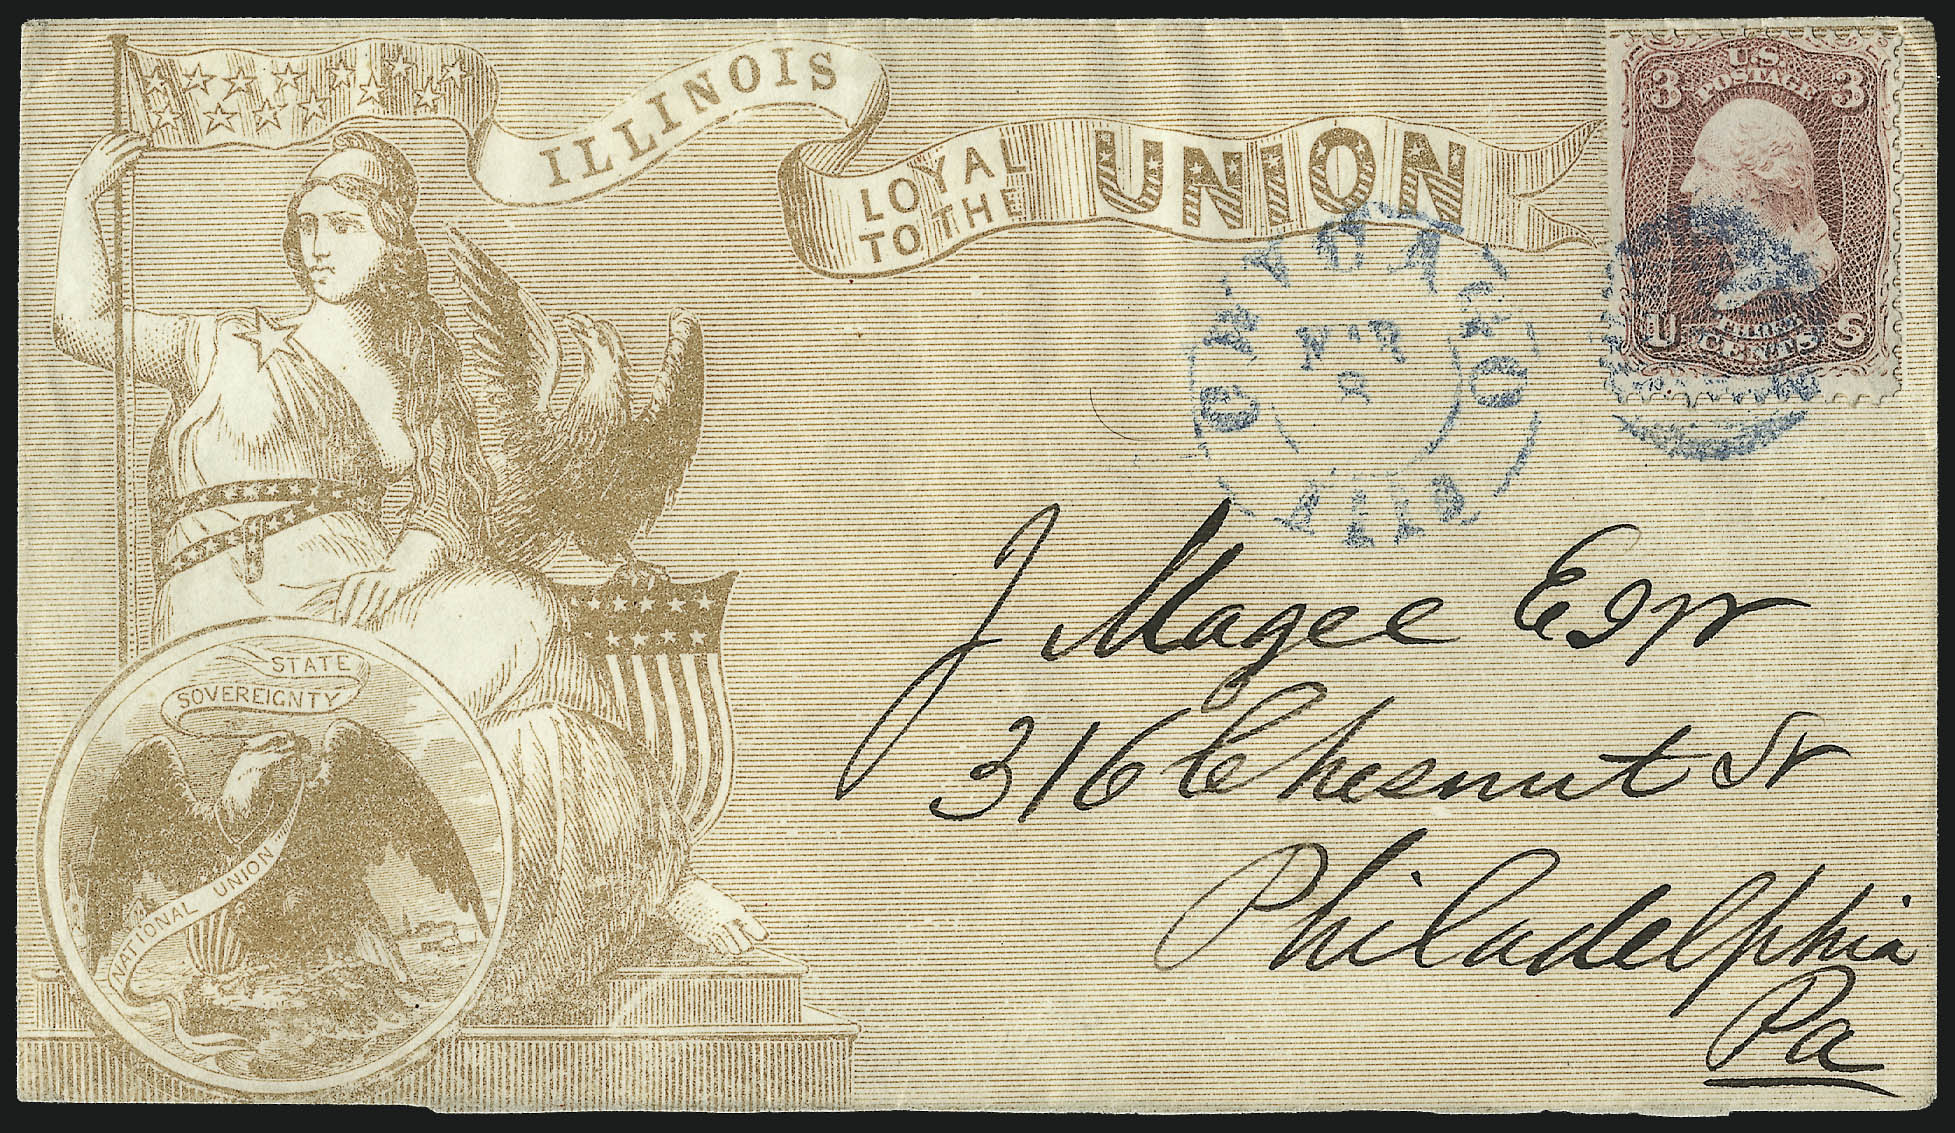 ILLINOIS
LOYAL
TO THE
UNION
3 U.S. 3
POSTAGE
THREE
U CENTS S
CHICAGO
ILL
J Magee Esqr
316 Chesnut St
Philadelphia
Pa
STATE
SOVEREIGNTY
NATIONAL UNION